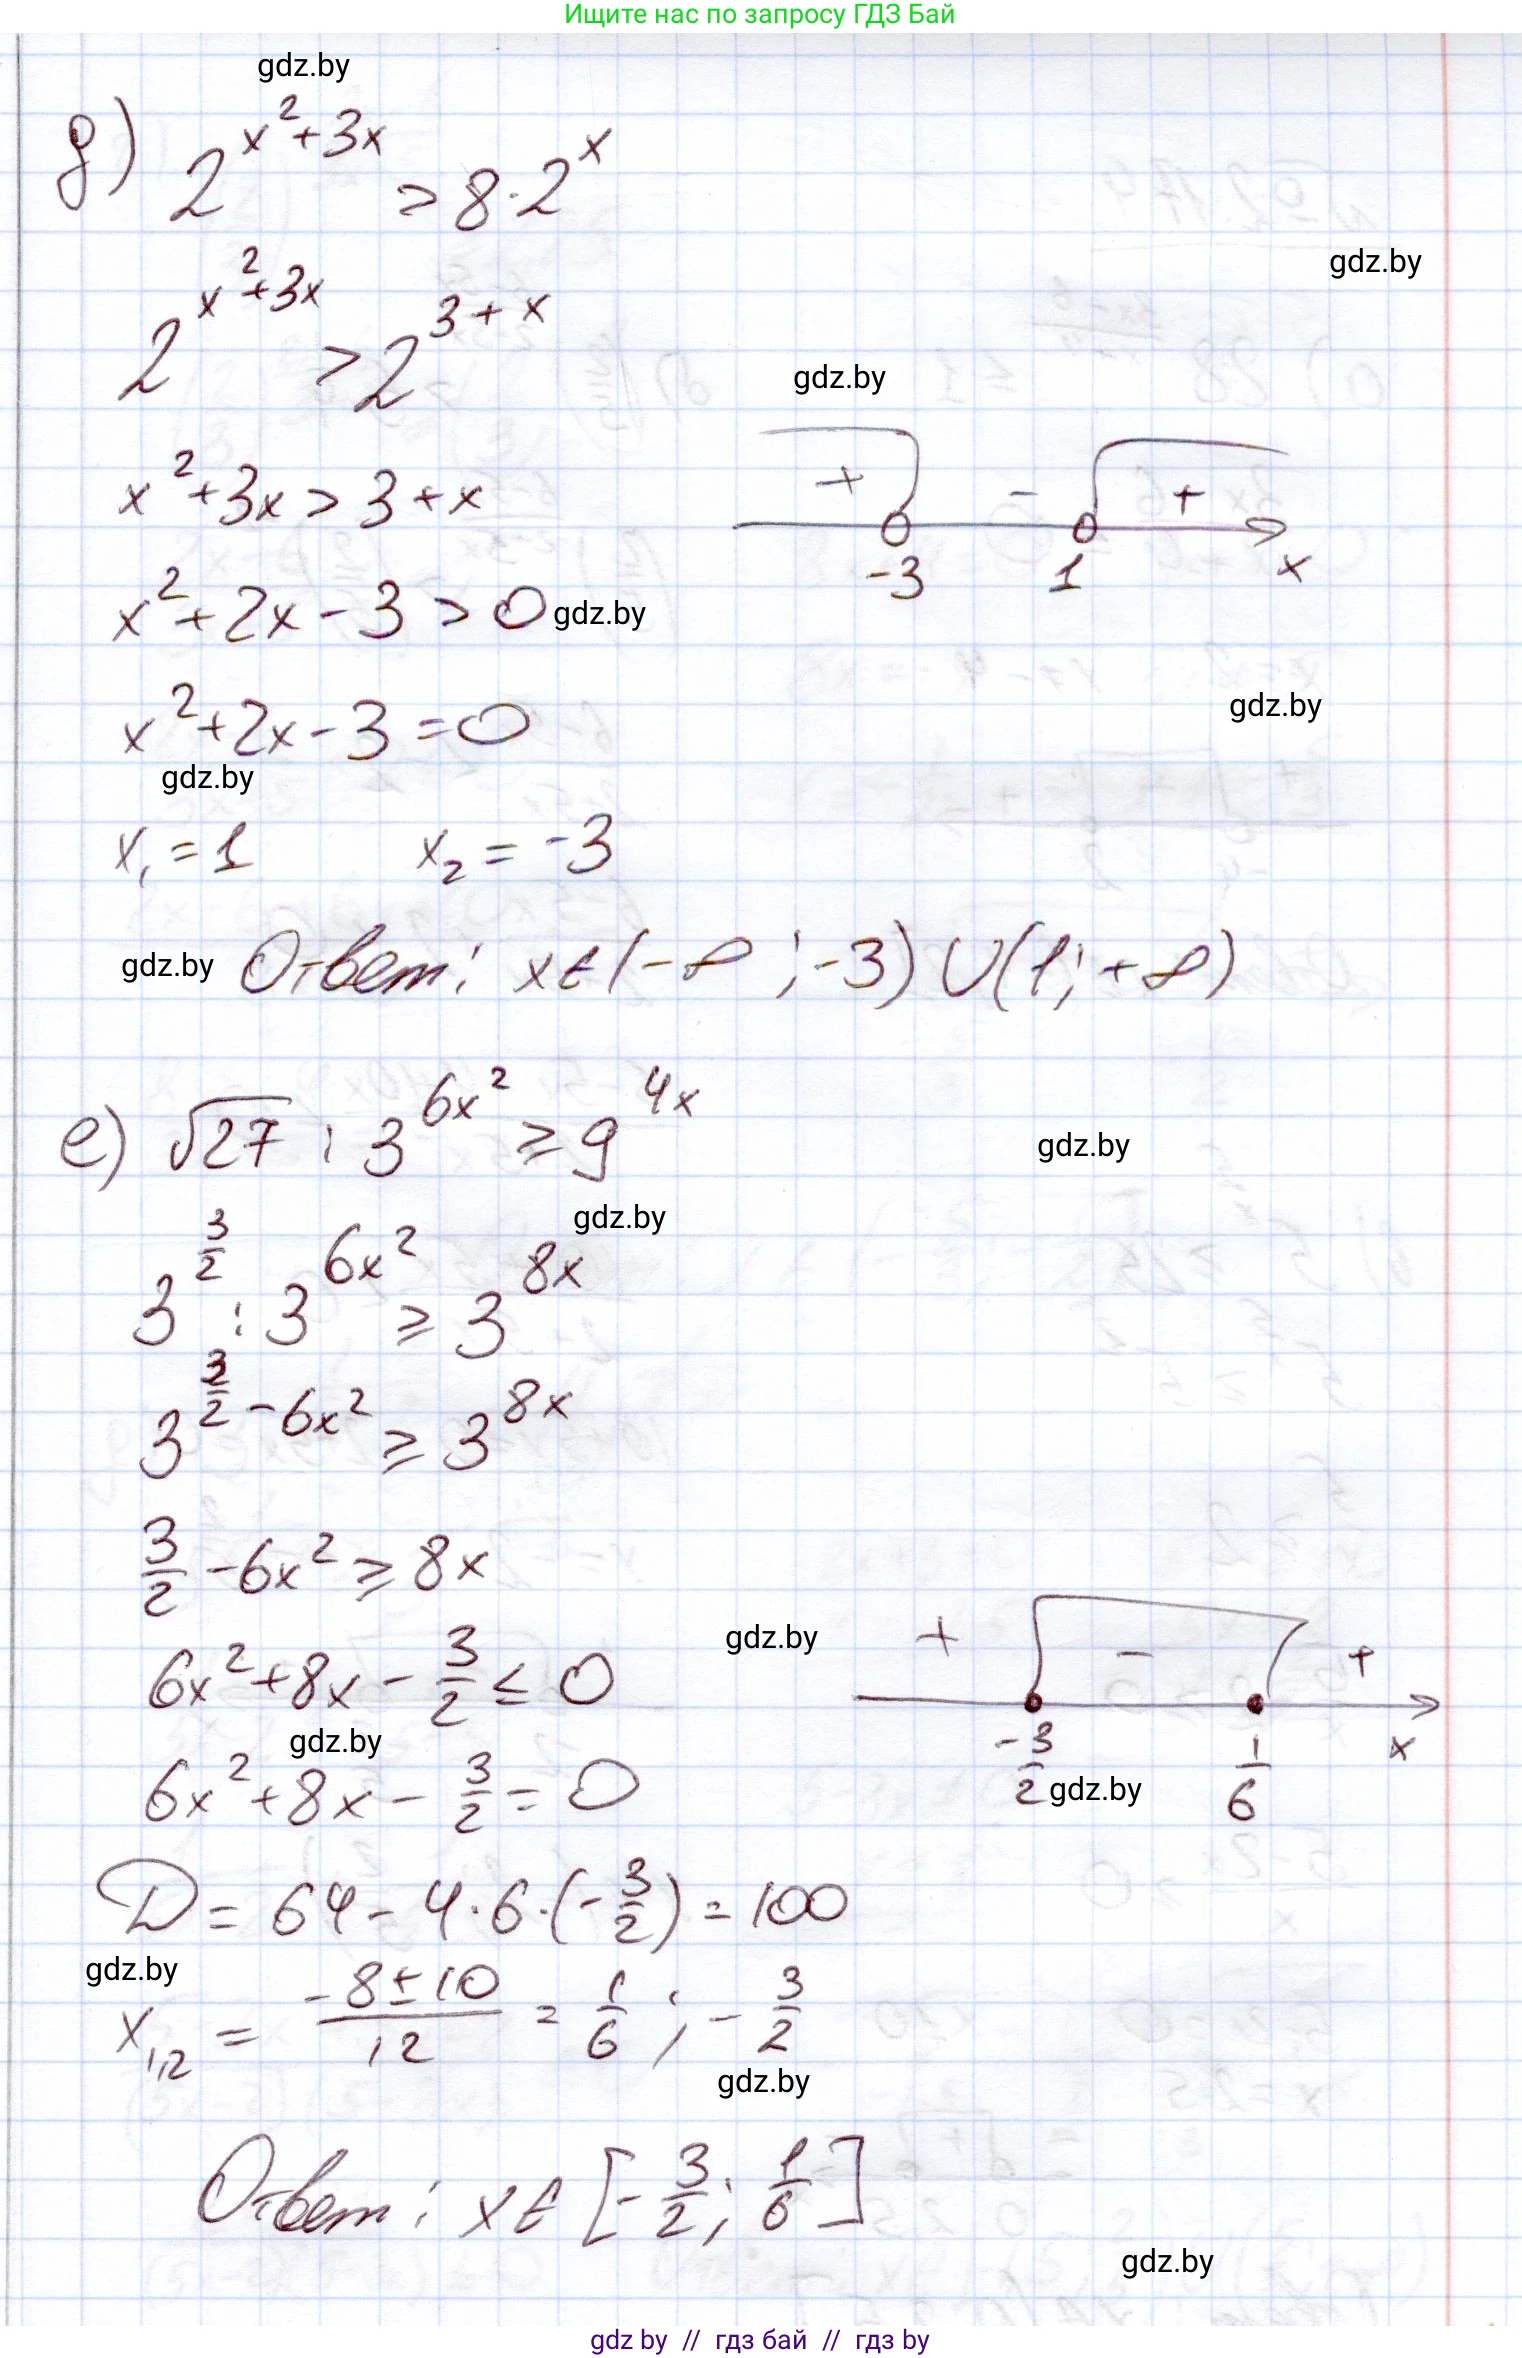 Ищите нас по запросу ГДЗ Бай
gdz.by
д) 2^{x²+3x} > 8·2^x
gdz.by
2^{x²+3x} > 2^{3+x}
gdz.by
x²+3x > 3+x
+ - +
-3 1 x
x²+2x-3 > 0
gdz.by
gdz.by
x²+2x-3=0
gdz.by
x₁=1 x₂=-3
gdz.by
Ответ: x∈(-∞;-3)∪(1;+∞)
е) √27 : 3^{6x²} ≥ 9^{4x}
gdz.by
gdz.by
3^{3/2} : 3^{6x²} ≥ 3^{8x}
3^{3/2-6x²} ≥ 3^{8x}
3/2 - 6x² ≥ 8x
gdz.by
+ - +
6x²+8x - 3/2 ≤ 0
-3/2 1/6 x
gdz.by
gdz.by
6x²+8x - 3/2 = 0
D = 64 - 4·6·(-3/2) = 100
gdz.by
x₁,₂ = (-8±10)/12 = 1/6 ; -3/2
gdz.by
Ответ: x∈[-3/2; 1/6]
gdz.by
gdz by // гдз бай // гдз by